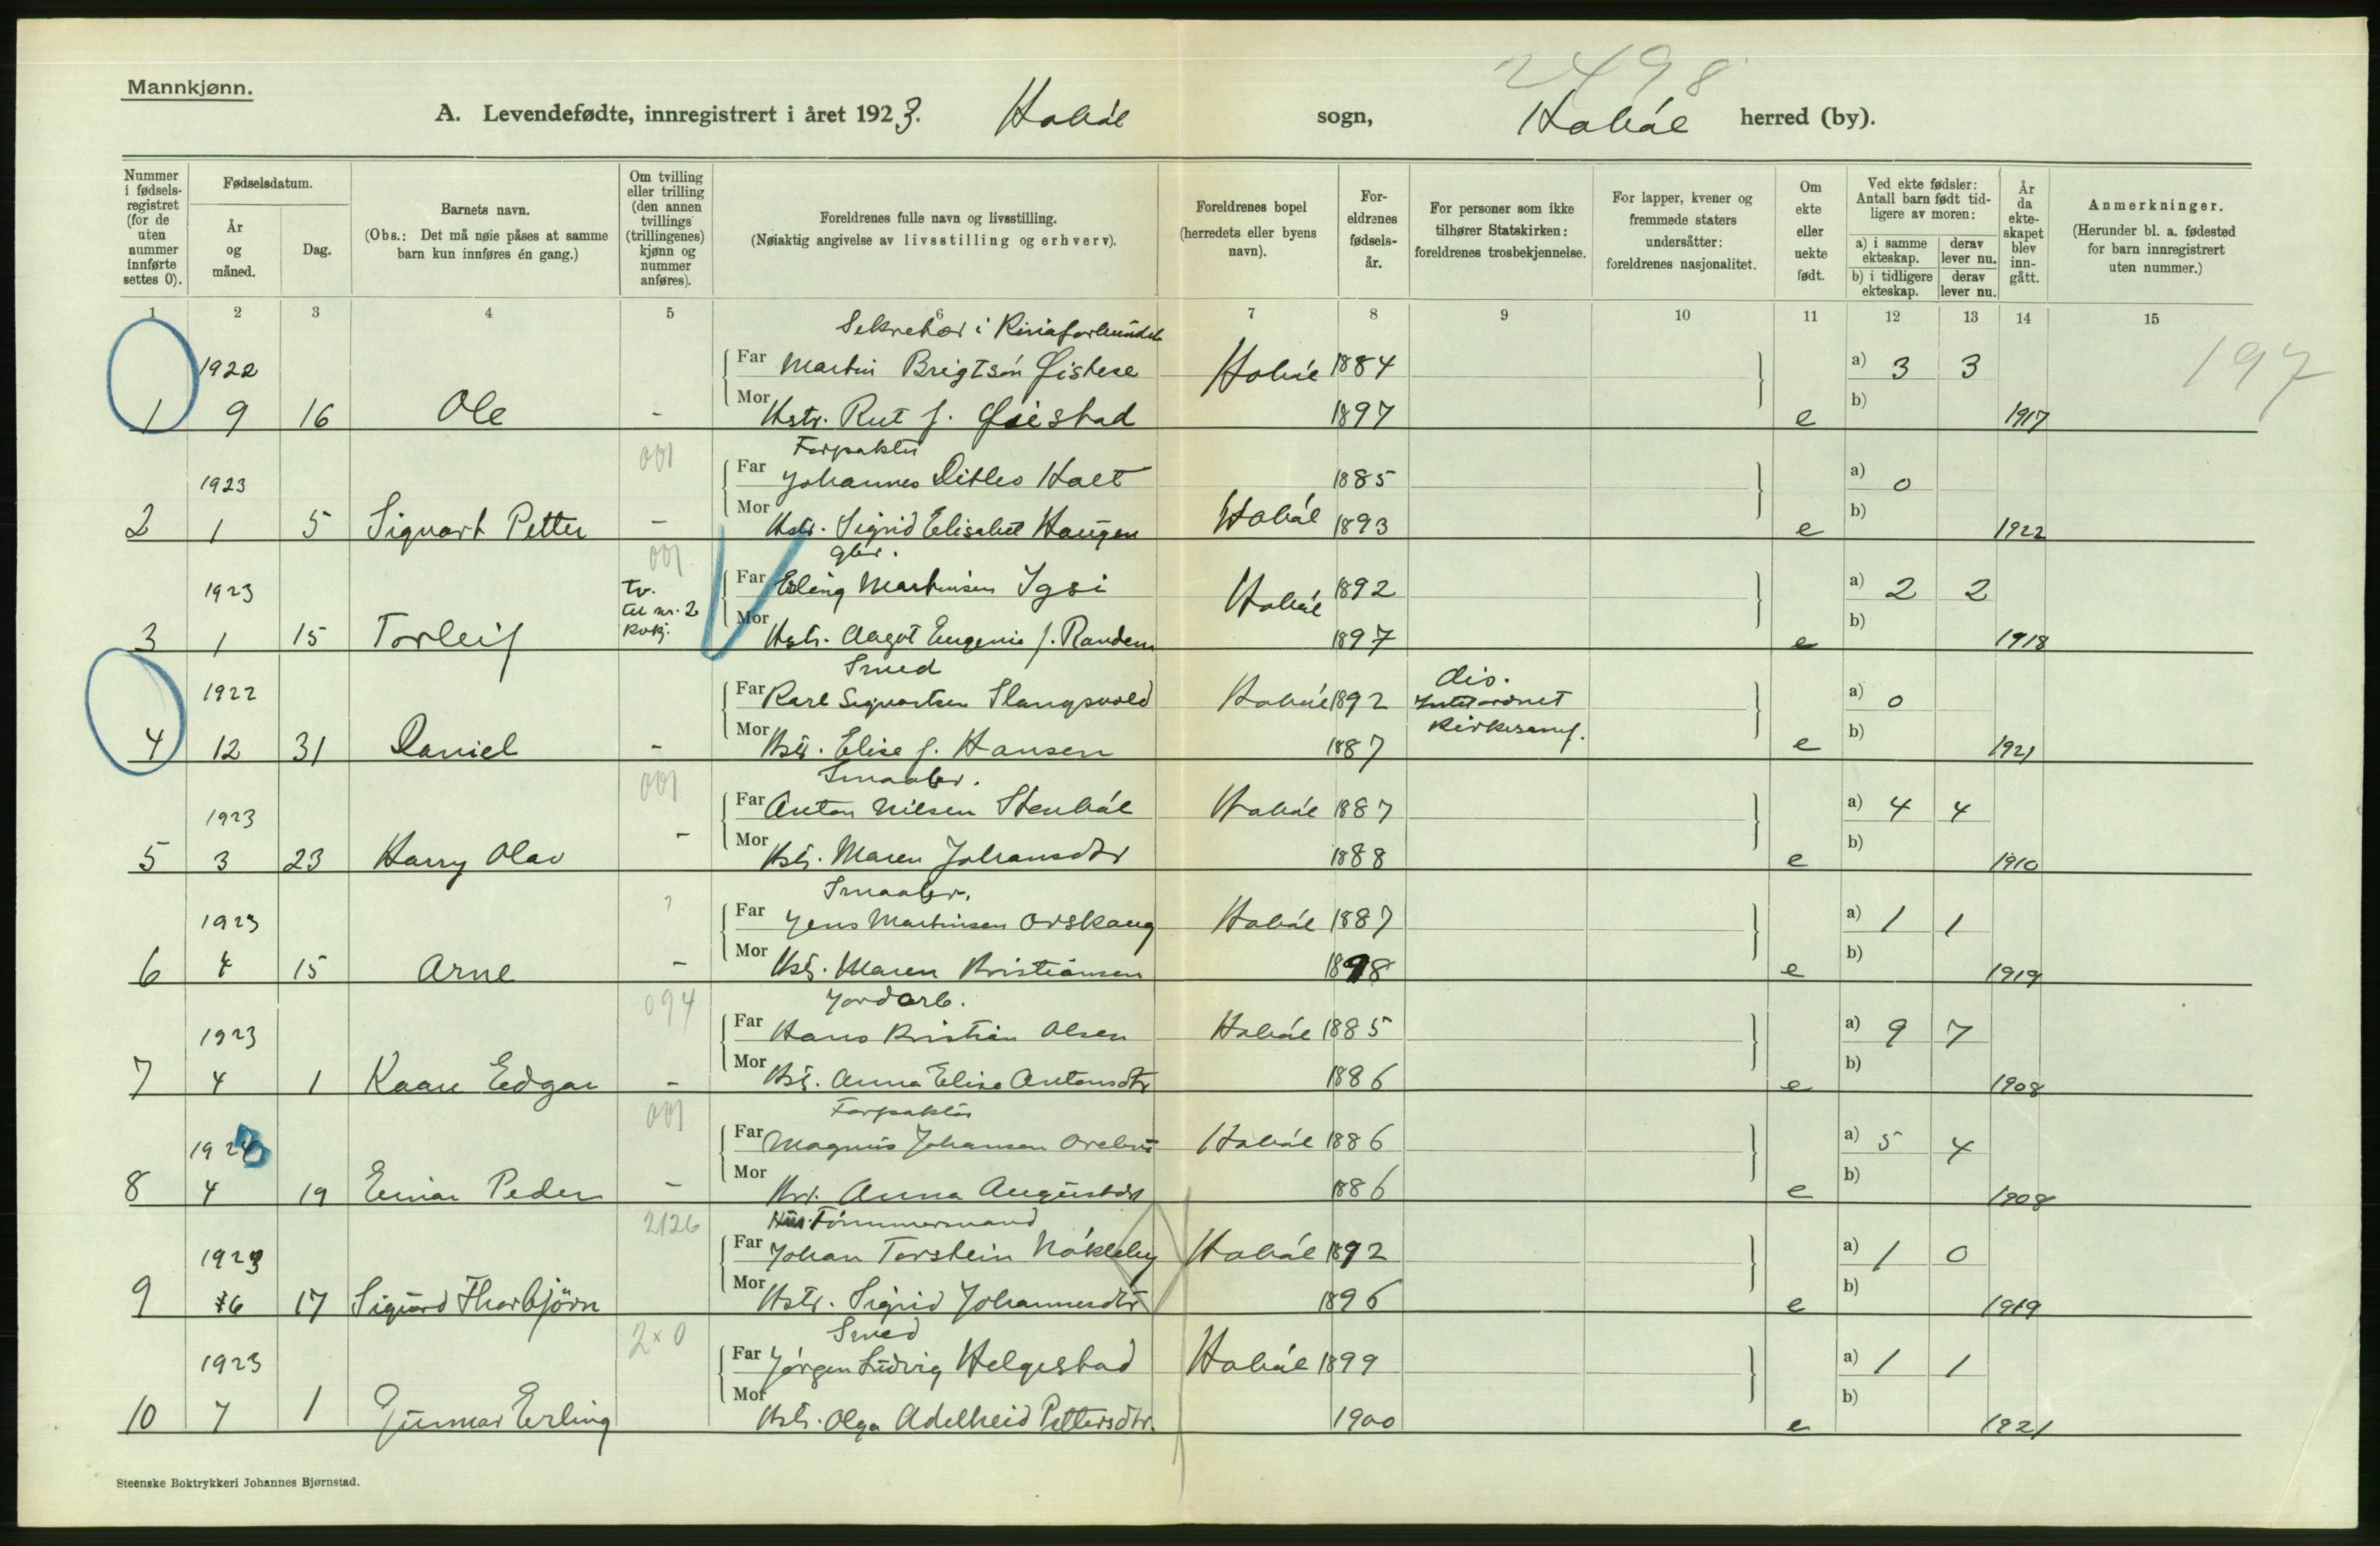 2498
Mannkjønn.
A. Levendefødte, innregistrert i året 1923. Hobøl sogn, Hobøl herred (by).
Nummer i fødselsregistret (for de uten nummer innførte settes 0).
Fødselsdatum.
År og måned.
Dag.
Barnets navn.
(Obs.: Det må nøie påses at samme barn kun innføres én gang.)
Om tvilling eller trilling (den annen tvillings (trillingenes) kjønn og nummer anføres).
Foreldrenes fulle navn og livsstilling.
(Nøiaktig angivelse av livsstilling og erhverv).
Foreldrenes bopel (herredets eller byens navn).
Foreldrenes fødselsår.
For personer som ikke tilhører Statskirken: foreldrenes trosbekjennelse.
For lapper, kvener og fremmede staters undersåtter: foreldrenes nasjonalitet.
Om ekte eller uekte født.
Ved ekte fødsler: Antall barn født tidligere av moren:
a) i samme ekteskap. derav lever nu.
b) i tidligere ekteskap. derav lever nu.
År da ekteskapet blev inngått.
Anmerkninger.
(Herunder bl. a. fødested for barn innregistrert uten nummer.)
1 2 3 4 5 6 7 8 9 10 11 12 13 14 15
Sekretær i Kinaforbundet
1922 Far Martin Brigtsøn Øistese Hobøl 1884 a) 3 3 197
1 9 16 Ole - Mor Hstr. Rut f. Øiestad 1897 e b) 1917
001 Forpakter
1923 Far Johannes Ditlev Holt 1885 a) 0
2 1 5 Sigvart Petter - Mor Hstr. Sigrid Elisabet Haugen Hobøl 1893 e b) 1922
001 gbr.
1923 tv. til nr. 2 kvkj. Far Erling Martinsen Igsi Hobøl 1892 a) 2 2
3 1 15 Torleif Mor Hstr. Aagot Eugenie f. Randem 1897 e b) 1918
Smed
1922 Far Karl Sigvartsen Slangsvold Hobøl 1892 dis. a) 0
4 12 31 Daniel - Mor Hstr. Elise f. Hansen 1887 kirkesamf. e b) 1921
001 Smaabr.
1923 Far Anton Nilsen Stenbøl Hobøl 1887 a) 4 4
5 3 23 Harry Olav - Mor Hstr. Maren Johansdtr 1888 e b) 1910
? Smaabr.
1923 Far Jens Martinsen Orskaug Hobøl 1887 a) 1 1
6 4 15 Arne - Mor Hstr. Maren Kristiansen 1898 e b) 1919
094 Jordarb.
1923 Far Hans Kristian Olsen Hobøl 1885 a) 9 7
7 4 1 Kaare Edgar - Mor Hstr. Anna Elise Antonsdtr 1886 e b) 1908
001 Forpakter
1923 Far Magnus Johansen Orebro Hobøl 1886 a) 5 4
8 4 19 Einar Peder - Mor Anna Augustdtr 1886 e b) 1908
2126 Hus. Tømmermand
1923 Far Johan Torstein Nøkleby Hobøl 1892 a) 1 0
9 6 17 Sigurd Thorbjørn Mor Hstr. Sigrid Johannesdtr 1896 e b) 1919
2×0 Smed
1923 Far Jørgen Ludvig Helgestad Hobøl 1899 a) 1 1
10 7 1 Gunnar Erling Mor Hstr. Olga Adelheid Pettersdtr. 1900 e b) 1921
Steenske Boktrykkeri Johannes Bjørnstad.